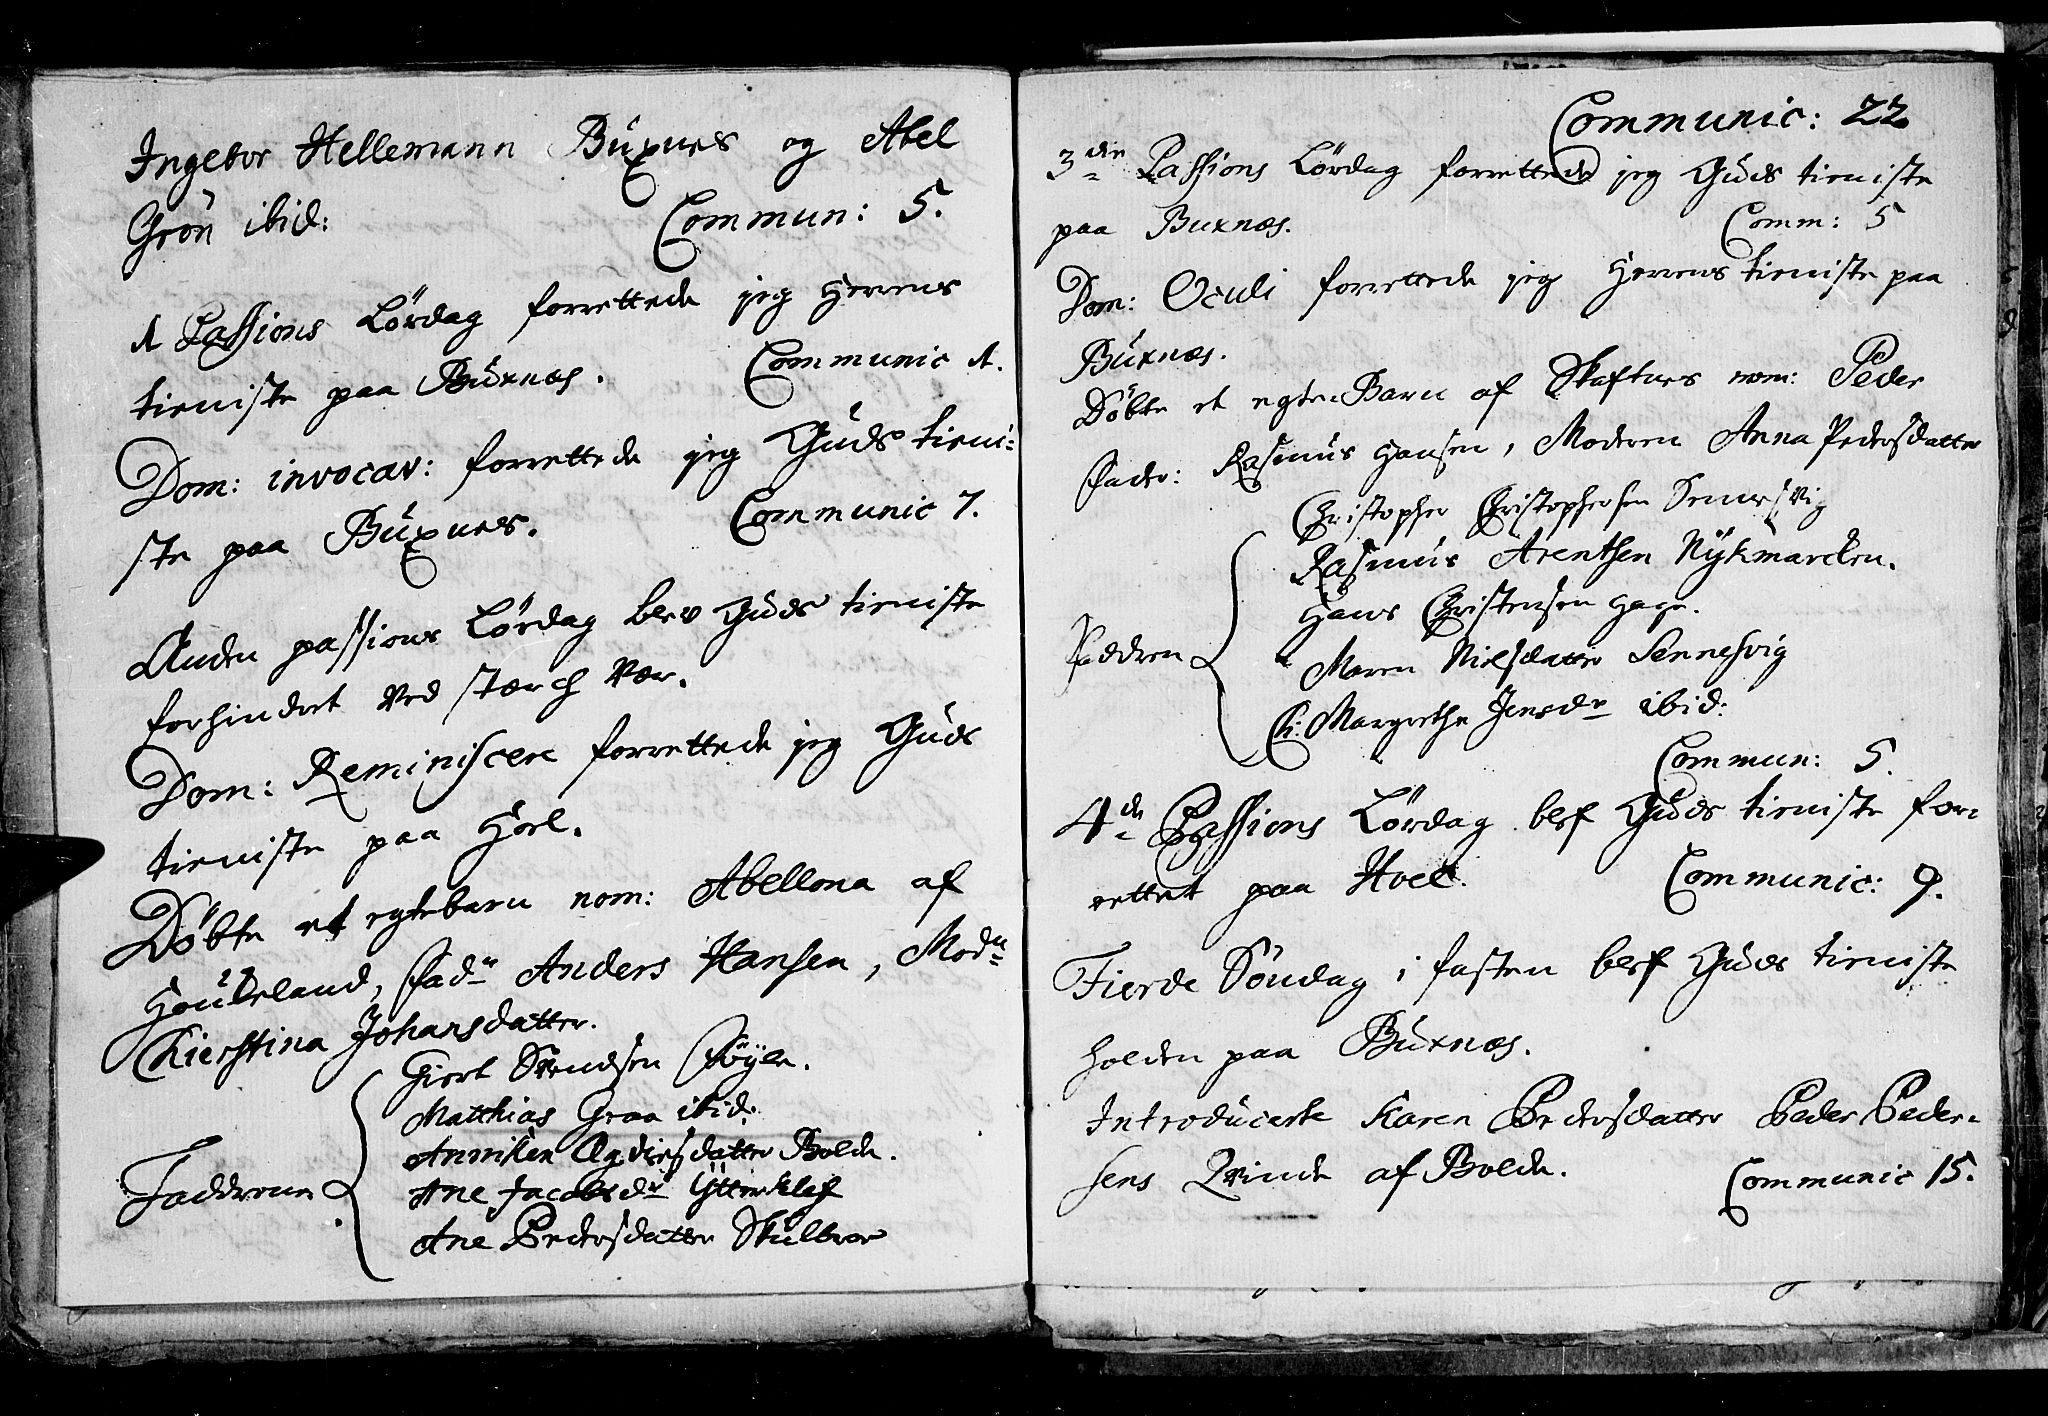 Ingebor Hellemann Büxnes og Abel
Grön ibid:
Commun: 5.
1 Passions Lördag forrettede jeg Herrens
tieniste paa Büxnæs.
Communic 1.
Dom: invocav: forrettede jeg Güds tieni-
ste paa Büxnes.
Communic 7.
Anden passions Lördag blev Güds tieniste
forhindret ved stærch Vær.
Dom: Reminiscere forrettede jeg Güds
tieniste paa Hoel.
Döbte et egtebarn nom: Abellona af
Houkeland, Fadr Anders Hansen, Modn
Kierstina Johansdatter.
Giert Svendsen Föyle.
Matthias Graa ibid:
Anniken Ægdiesdatter Bolde.
Faddrene
Ane Jacobsdr Ytterklef
Ane Pedersdatter Skülbrer
Communic: 22
3die Passions Lördag forrettede jeg Güds tieniste
paa Buxnæs.
Comm: 5
Dom: Oculi forrettede jeg Herrens tieniste paa
Büxnæs.
Döbte et egte Barn af Skaftnes nom: Peder
Fader: Rasmüs Hansen, Moderen Anna Pedersdatter
Christopher Christophersen Sennesvig
Rasmüs Arentsen Nykmarcken.
Hans Christensen Hage.
Faddren
Maren Nielsdatter Sennesvig
Margrethe Jensdr ibid:
Commun: 5.
4de Passions Lördag blef Güds tieniste for-
rettet paa Hoel.
Communic: 9.
Fierde Söndag i fasten blef Güds tieniste
holden paa Büxnæs.
Introdücerte Karen Pedersdatter Peder Peder-
sens Qvinde af Bolde.
Communic 15.